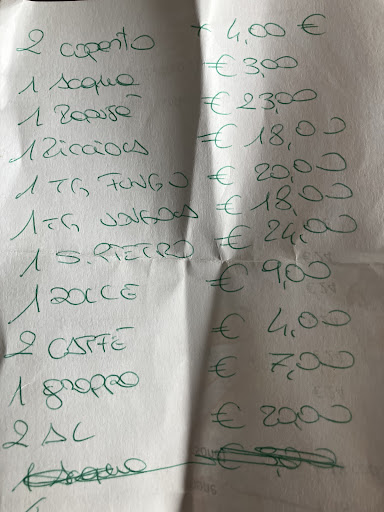 2 coperto * 4,00 €
1 Acqua € 3,00
1 € 23,00
1 Ricciola € 18,00
1 TG FUNGO € 20,00
1 TG VONGOLA € 18,00
1 S. PIETRO € 24,00
1 DOLCE € 9,00
2 CAFFÈ € 4,00
1 grappa € 7,00
2 AC € 20,00
1 Acqua € 3,00